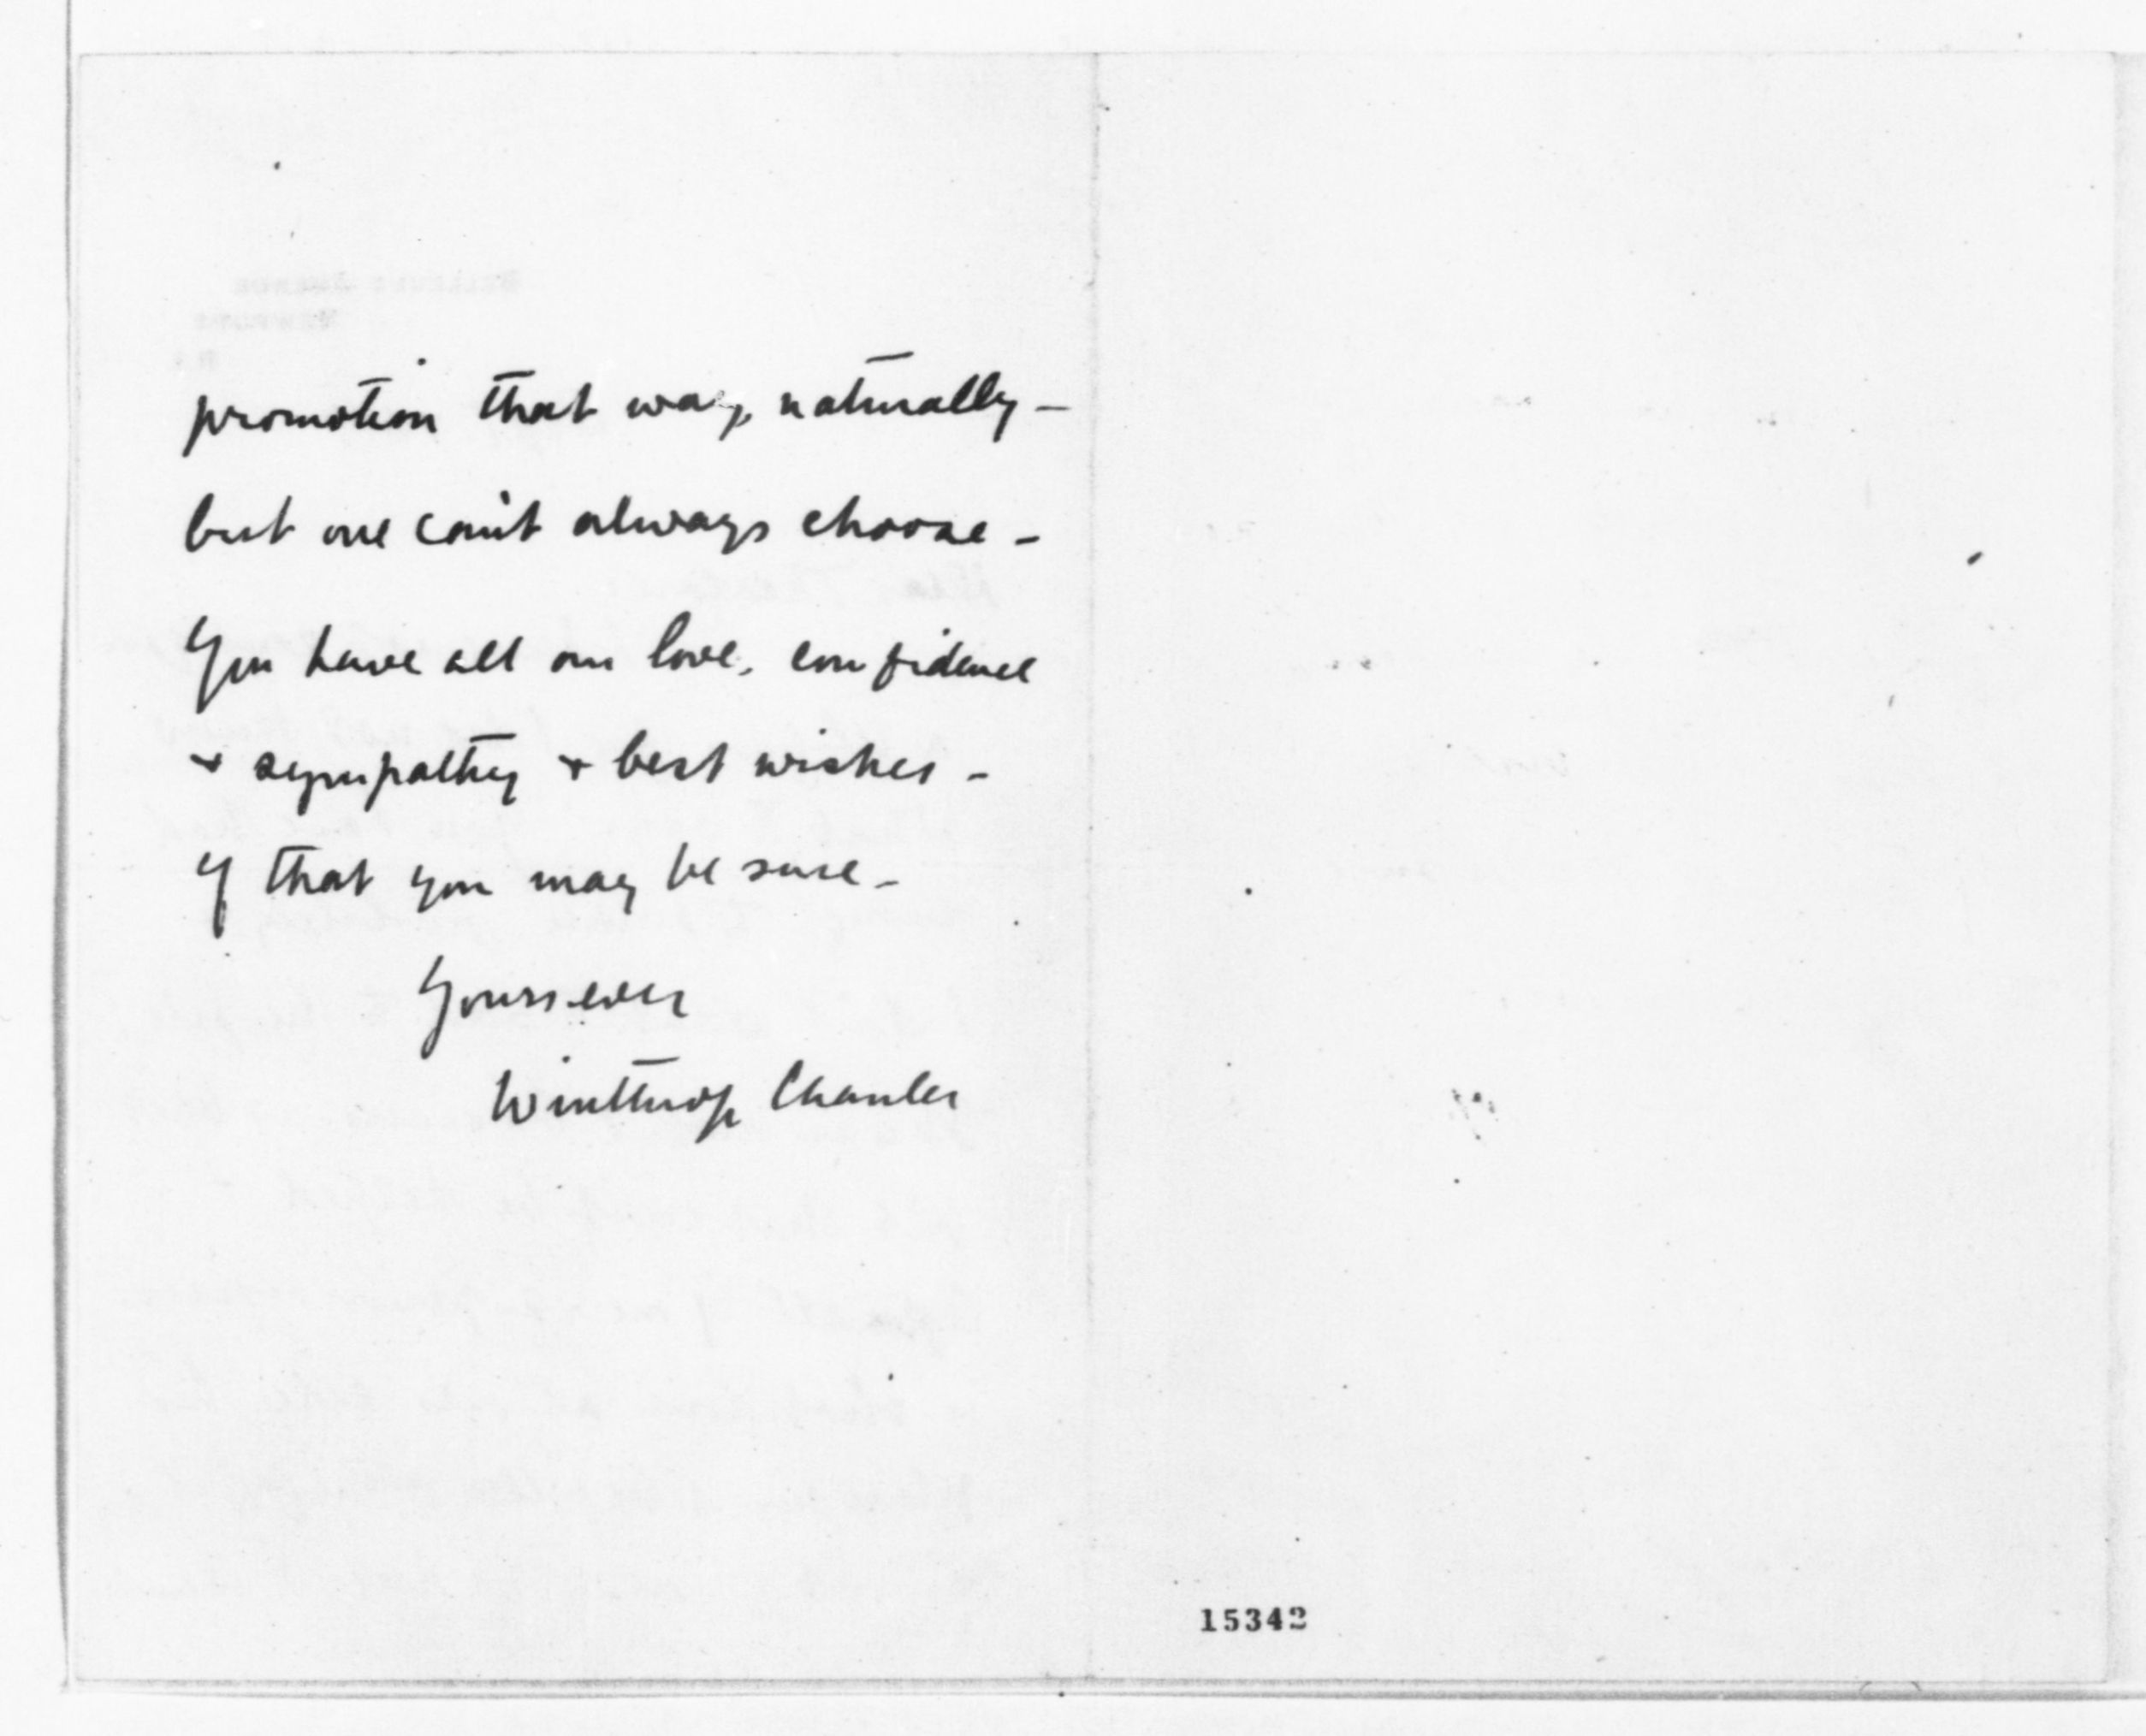 promotion that way, naturally –
but one can't always choose –
You have all our love, confidence
+ sympathy + best wishes –
of that you may be sure –
Yours ever
Winthrop Chanler
15342